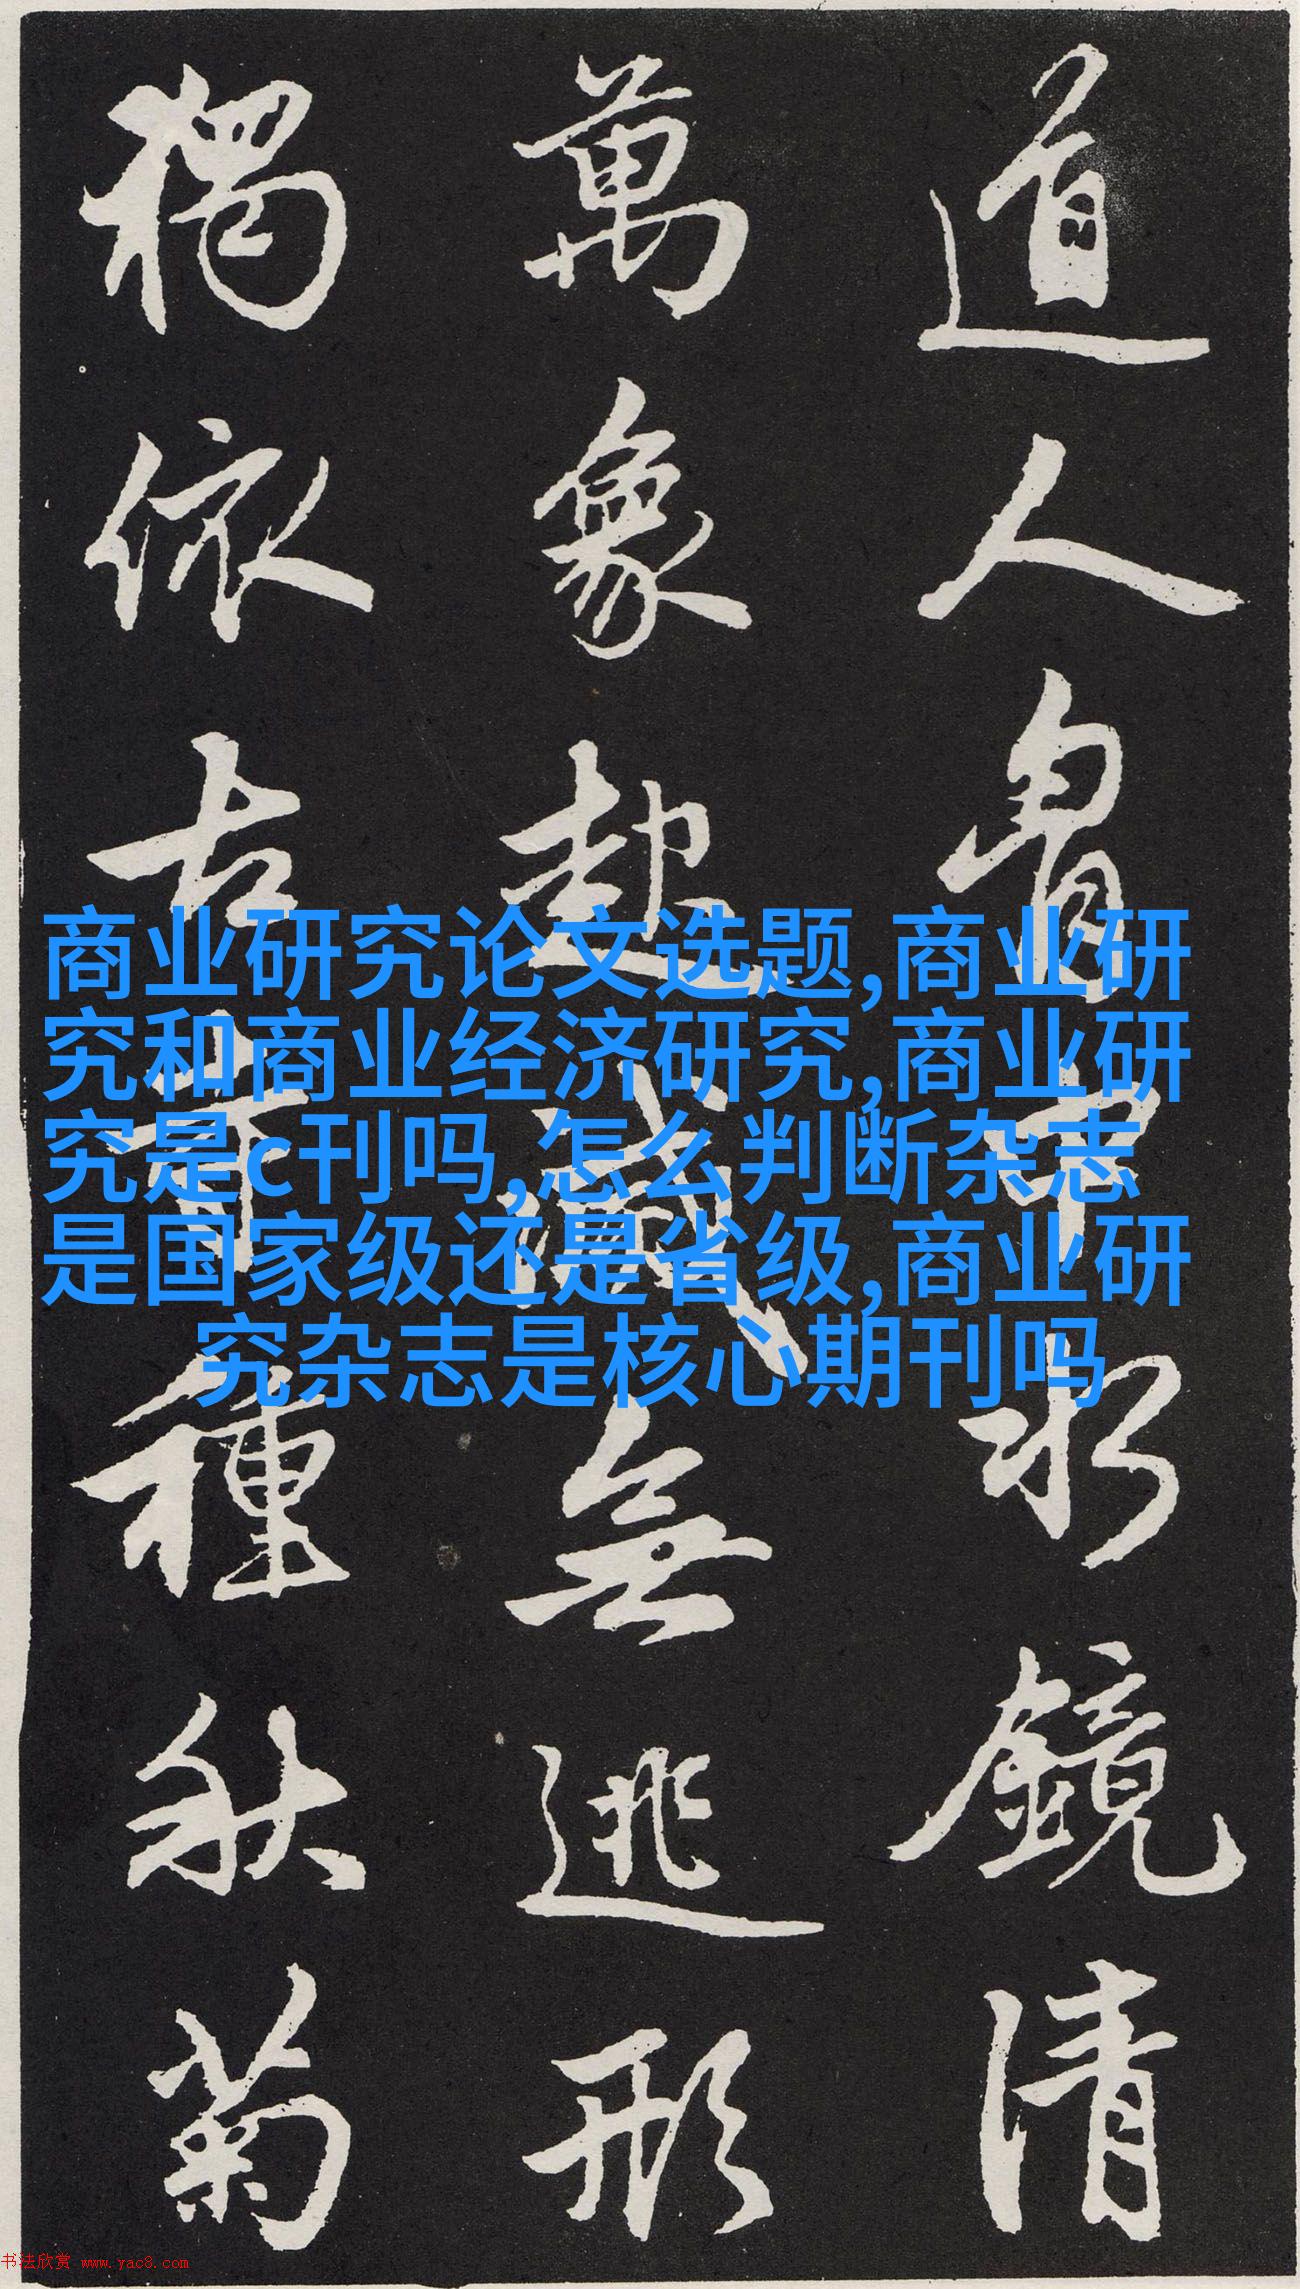 道人胷中水鏡清
萬象起滅無逃形
獨依古寺種秋菊
商业研究论文选题,商业研
究和商业经济研究,商业研
究是c刊吗,怎么判断杂志
是国家级还是省级,商业研
究杂志是核心期刊吗
书法欣赏 www.yac8.com